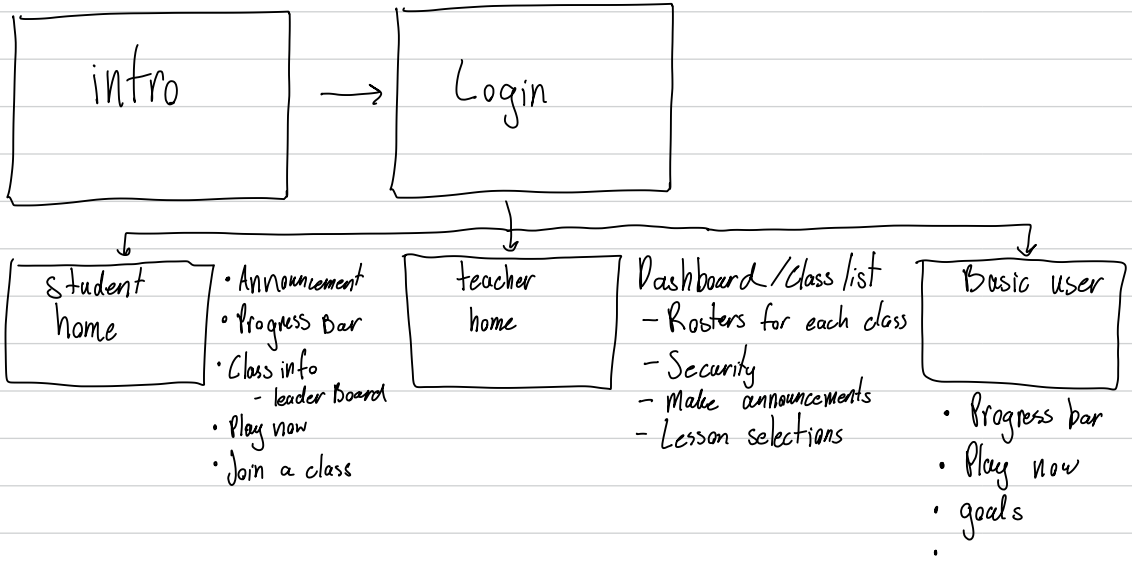 intro
Login
student
home
• Announcement
• Progress Bar
• Class info
- leader Board
• Play now
• Join a class
teacher
home
Dashboard/Class list
- Rosters for each class
- Security
- Make announcements
- Lesson selections
Basic user
• Progress bar
• Play now
• goals
•